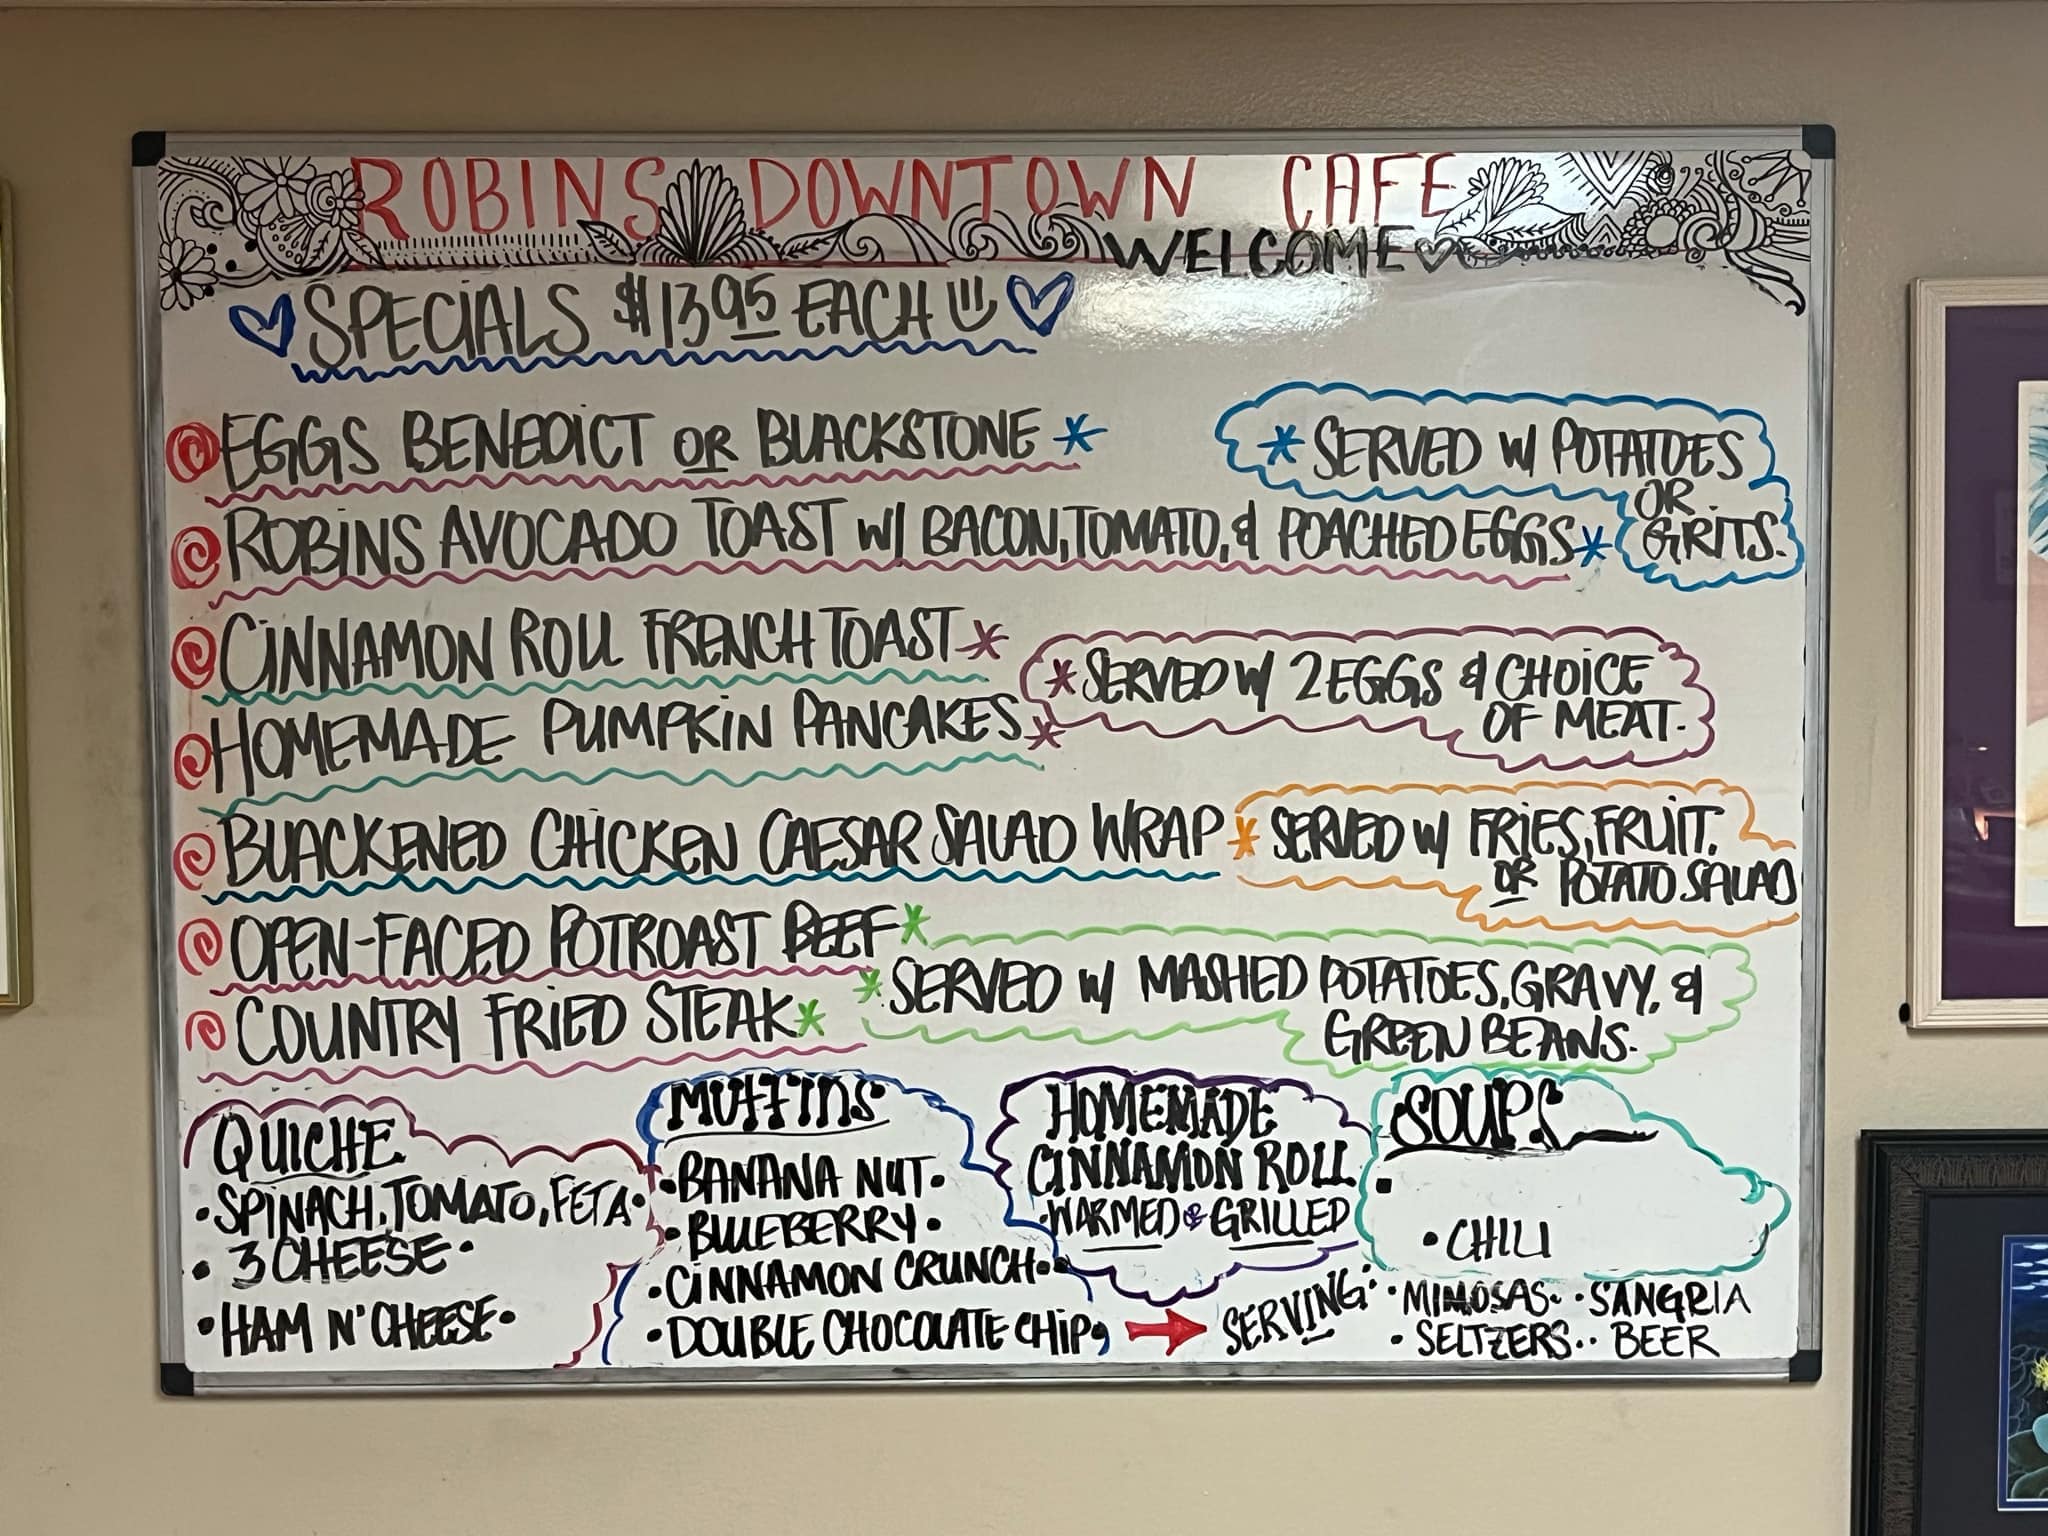 ROBINS DOWNTOWN CAFE
WELCOME
SPECIALS $13.95 EACH
EGGS BENEDICT OR BLACKSTONE *
* SERVED W/ POTATOES
OR
GRITS.
ROBINS AVOCADO TOAST W/ BACON, TOMATO, & POACHED EGGS *
CINNAMON ROLL FRENCH TOAST *
* SERVED W/ 2 EGGS & CHOICE
OF MEAT.
HOMEMADE PUMPKIN PANCAKES *
BLACKENED CHICKEN CAESAR SALAD WRAP
* SERVED W/ FRIES, FRUIT,
OR POTATO SALAD
OPEN-FACED POTROAST BEEF *
* SERVED W/ MASHED POTATOES, GRAVY, &
GREEN BEANS.
COUNTRY FRIED STEAK *
QUICHE
• SPINACH, TOMATO, FETA •
• 3 CHEESE •
• HAM N' CHEESE •
MUFFINS
• BANANA NUT •
• BLUEBERRY •
• CINNAMON CRUNCH •
• DOUBLE CHOCOLATE CHIP •
HOMEMADE
CINNAMON ROLL
• WARMED OR GRILLED
SOUPS
•
• CHILI
→ SERVING:
• MIMOSAS • • SANGRIA
• SELTZERS • • BEER